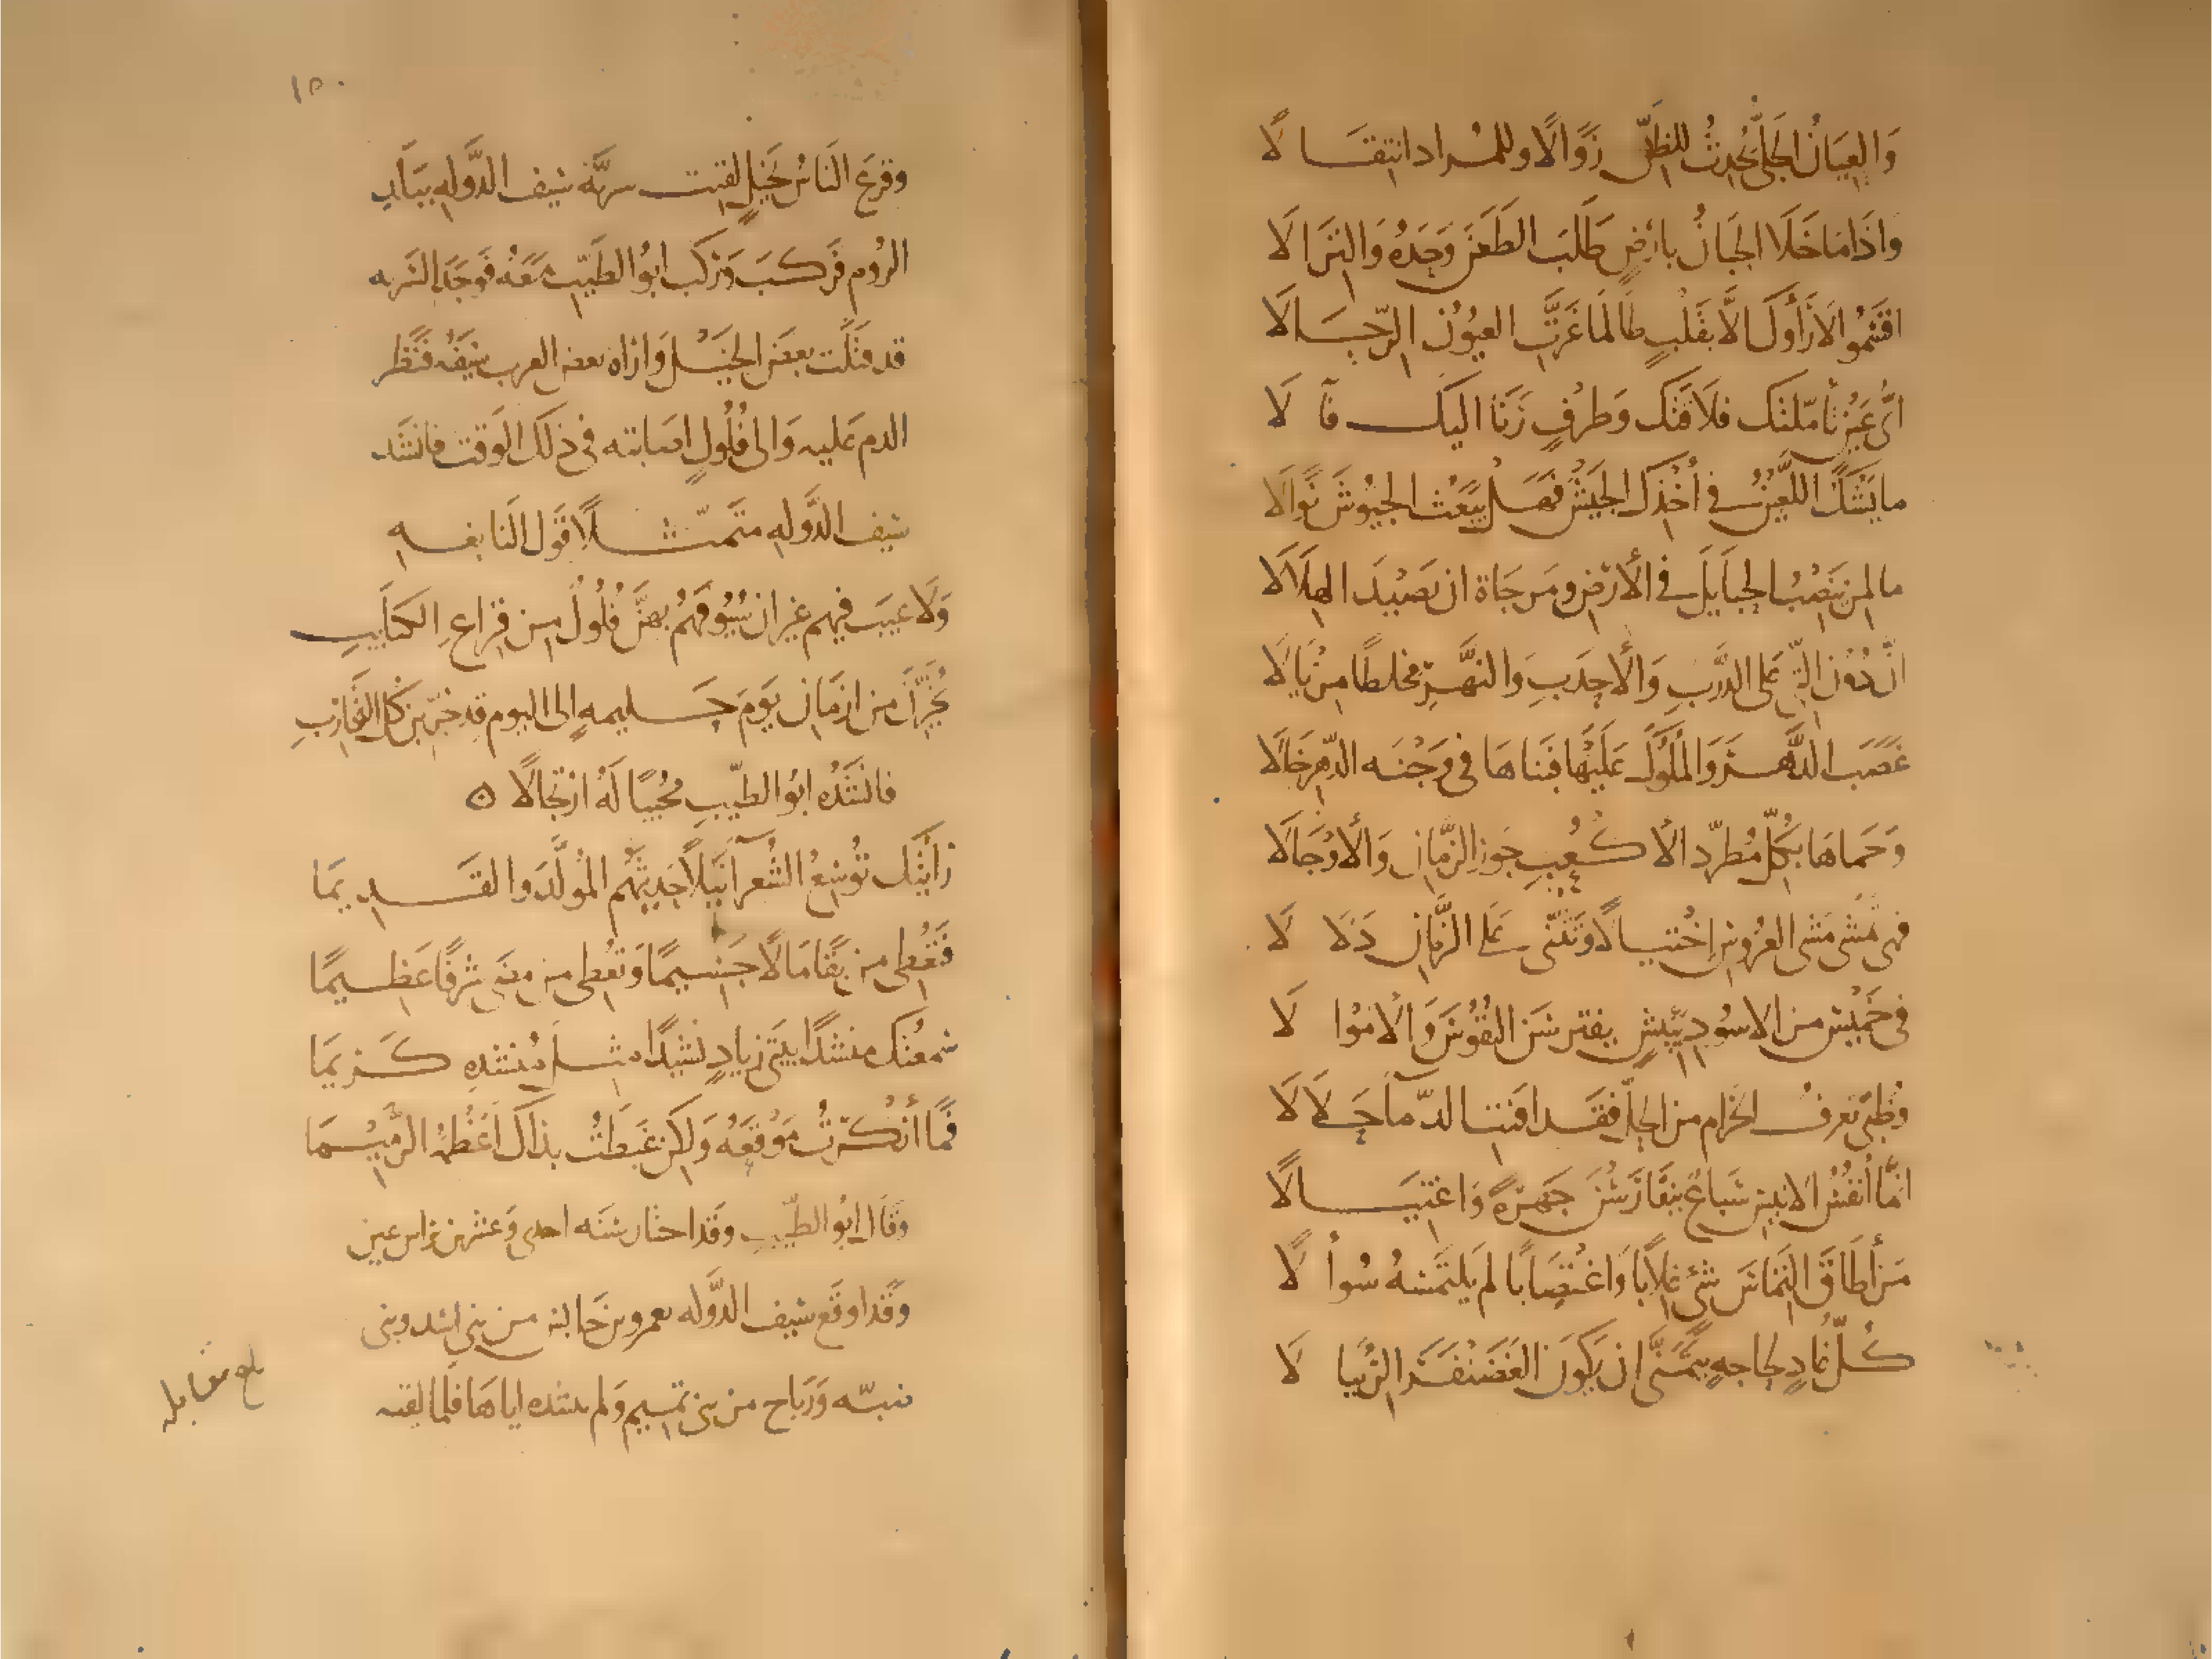 وَالعِيَانُ الجَلِيُّ يُحدِثُ للظَنِّ زَوَالًا وللمُراد انتِقَالًا
واذَا مَا خَلَا الجَبَانُ بارضٍ طَلَبَ الطَعْنَ وَحْدَهُ وَالنِزَالَا
اقسَمُوا لا رَأَوكَ الَّا بقَلْبٍ طَالَمَا غَرَّتِ العيُونُ الرِّجَالَا
أىُّ عَيْنٍ تأمّلتْكَ فلَاقَتْكَ وَطرْفٍ رَنَا اليكَ فآلَا
ما يَشُكُّ اللَّعِينُ فى أَخْذِكَ الجَيْشَ فهَل يَبْعَثُ الجيُوشَ نَوَالَا
ما لمن يَنصِبُ الحبَايلَ فى الأرضِ ومَرجَاة ان يَصْيدَ الهِلَالَا
انَّ دُونَ التى عَلى الدَّربِ وَالأَحدَبِ وَالنهَّرِ مخلطًا مِزْيَالَا
غَصَبَ الدَّهرَ وَالمُلُوكَ عَلَيْهَا فبَنَاهَا فى وَجْنَه الدّهرِ خَالَا
وَحَماهَا بكُلِّ مُطّرِد الأكعُبِ جَورَ الزّمَانِ وَالأَوْجَالَا
فهى تَمْشى مَشْىَ العرُوسِ اخْتيالًا وَتَثَنّى عَلى الزّمَانِ دَلَالَا
فى خَمِيسٍ من الاسُودِ بَئِيسٍ يفترسْنَ النفُوسَ وَالأموَالَا
وظُبًى تعرفُ الحَرام من الحِلِّ فقَد افنَتِ الدّمآ حَلَالَا
انمّا أنفُسُ الانِيسِ سبَاعٌ يَتفَارَسْنَ جَهْرَةً وَاغتِيَالًا
مَن أطَاقَ التِمَاسَ شىٍ غِلَابًا وَاغْتصَابًا لم يَلتَمِسْهُ سُوأَلًا
كُلُّ غَادٍ لحاجهٍ يَتمَنَّى ان يَكُونَ الغَضَنْفَرَ الرِّئبَالَا
١٥٠
وفزعَ النَاسُ لخَيلٍ لقيت سريَّة سَيف الدَّولهِ ببَلَدِ
الرُوم فركبَ وَرَكبَ ابُو الطَيّبِ مَعَهُ فوجَدَ السَريه
قد قتلَت بعضَ الخيل وَاراه بعض العرب سَيفَه فنَظر
الدم عَليه وَالى فُلُولٍ اصَابته فى ذلكَ الوَقت فانشَد
سَيف الدَّولهِ متَمثّلًا قَول النَابغهِ
وَلَا عيبَ فيهم غير ان سُيُوفهُمُ بهنَّ فُلُولٌ من قراعِ الكتَايبِ
تُخُيِّرنَ من ازمَانِ يَومَ حَليمهٍ الى اليوم قد جُرّبنَ كلَ التجَاربِ
فانشَدهُ ابُو الطَيّبِ مجُيبًا لَهُ ارتجَالًا ه
رَأيتُك تُوسِعُ الشُعرآ نَيلًا حَديثَهُم المُولَّدَ والقَديمَا
فتُعْطِى من بقَا مَالًا جَسِيمًا وَتُعطى من مضَى شرفًا عَظِيمًا
سَمعتُكَ منشدًا بيتَى زيادٍ نَشيدًا مثلَ مُنشدِهِ كريمَا
فمَا أنكرتُ مَوْقعَهُ وَلكن غَبطتُ بذاكَ أعظُمَهُ الرّميمَا
وقَالَ ابُو الطَيّبِ وقَد اجتَاز سَنَه احدى وَعشرين براس عين
وَقَد اوقَع سَيف الدَّوله بعمرو بن حَابس من بنى اسَد وبنى
ضبّه وَرَبَاح من بنى تمَيم وَلم ينشده اياهَا فلما لقيه
بلغ مقابله